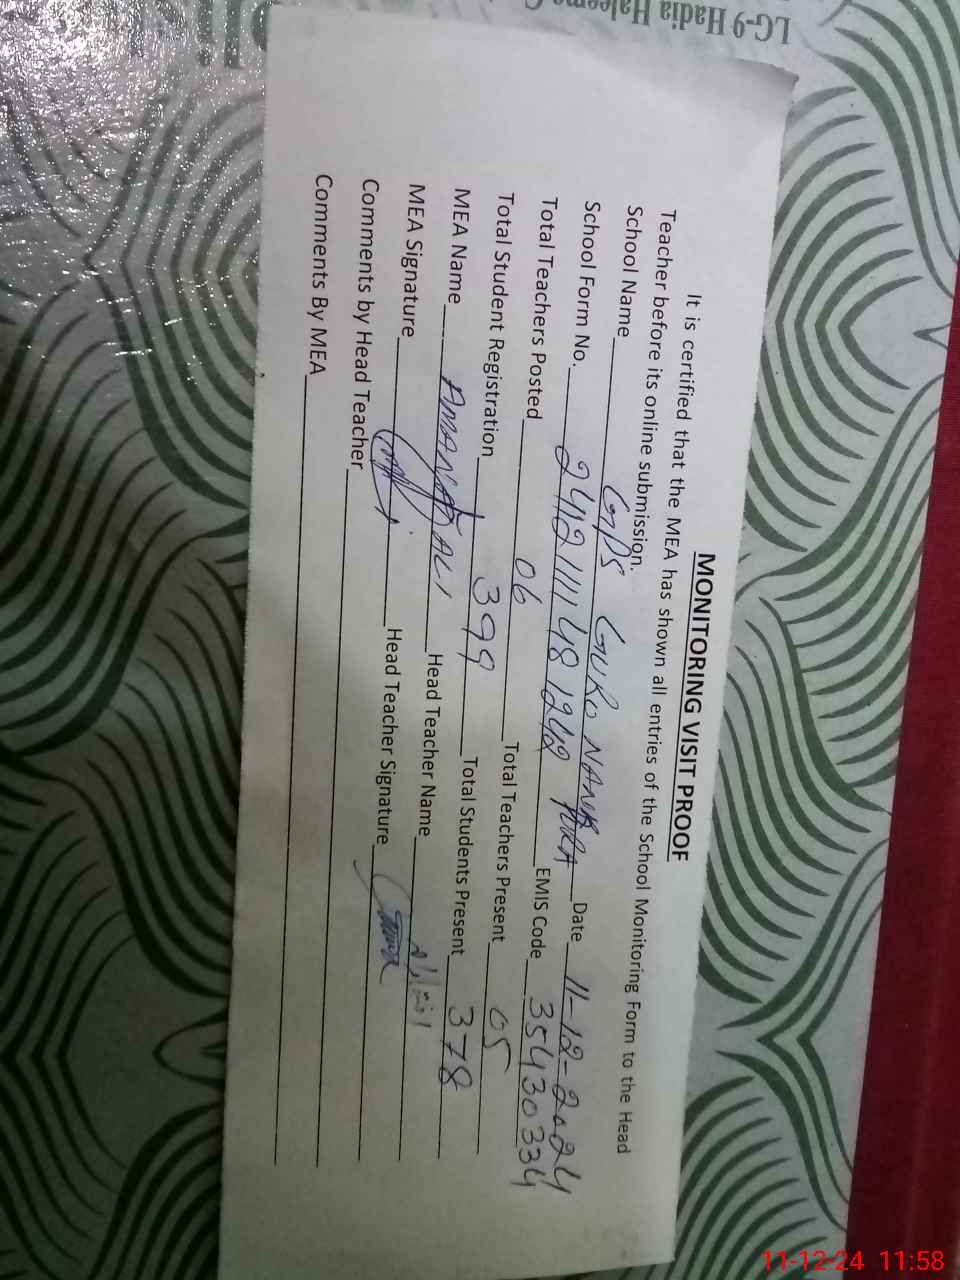 LG-9 Hadia Haleema
MONITORING VISIT PROOF
It is certified that the MEA has shown all entries of the School Monitoring Form to the Head
Teacher before its online submission.
School Name GPS GURO NANAK PURA Date 11-12-2024
School Form No. 24121111481242 EMIS Code 35430334
Total Teachers Posted 06 Total Teachers Present 05
Total Student Registration 399 Total Students Present 378
MEA Name AMANAT ALI Head Teacher Name
MEA Signature Head Teacher Signature
Comments by Head Teacher
Comments By MEA
11-12-24 11:58